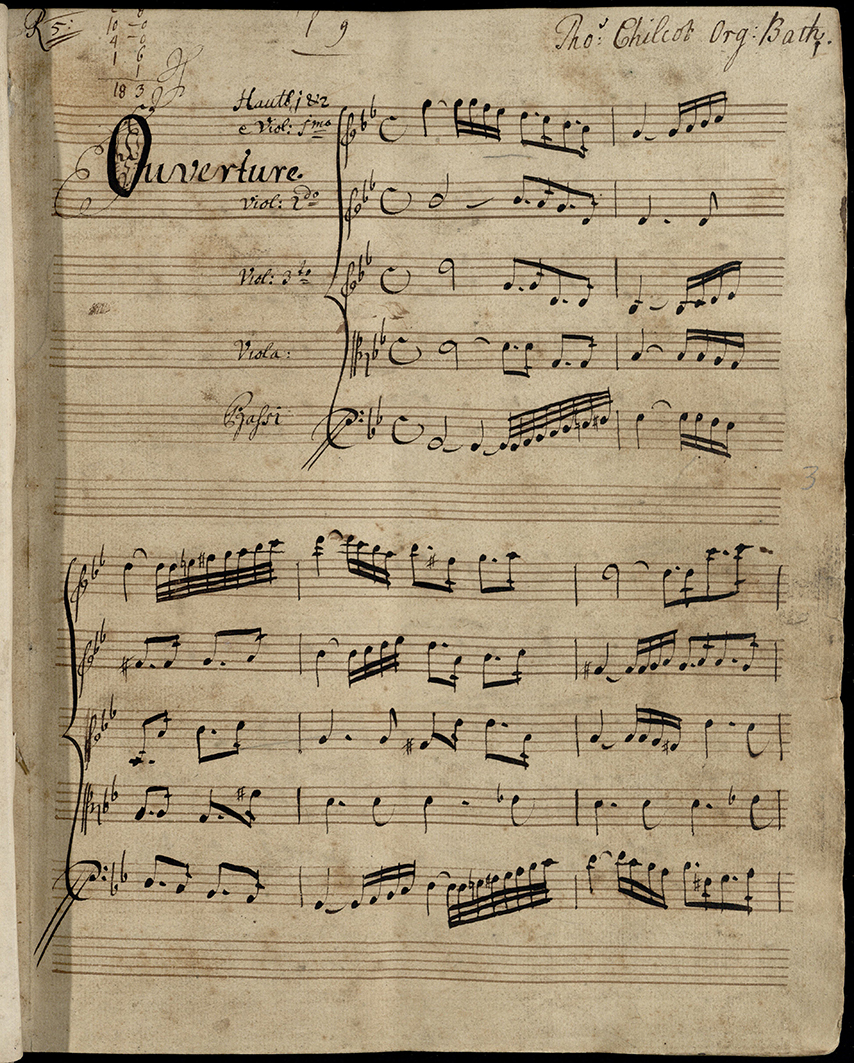 R 5:
10 - 0
4 - 0
1 6
1
18 3
9
Tho.s Chilcot Org: Bath.
Hautb. 1 & 2
e Viol: 1mo
Ouverture.
Viol: 2do
Viol: 3to
Viola:
Bassi
3